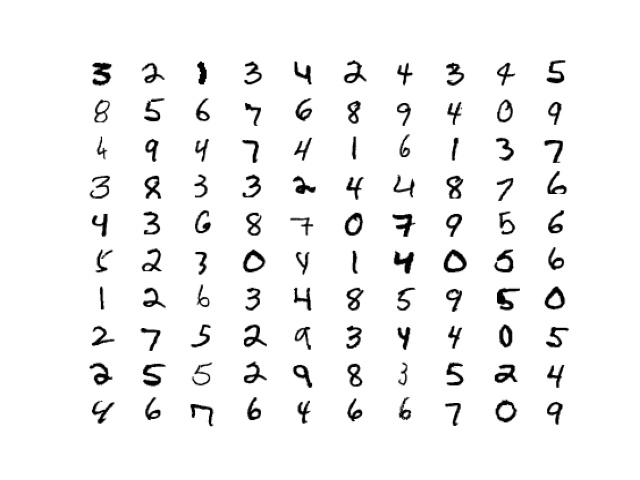 3 2 1 3 4 2 4 3 4 5
8 5 6 7 6 8 9 4 0 9
4 9 4 7 4 1 6 1 3 7
3 8 3 3 2 4 4 8 7 6
4 3 6 8 7 0 7 9 5 6
5 2 3 0 4 1 4 0 5 6
1 2 6 3 4 8 5 9 5 0
2 7 5 2 9 3 4 4 0 5
2 5 5 2 9 8 3 5 2 4
4 6 7 6 4 6 6 7 0 9